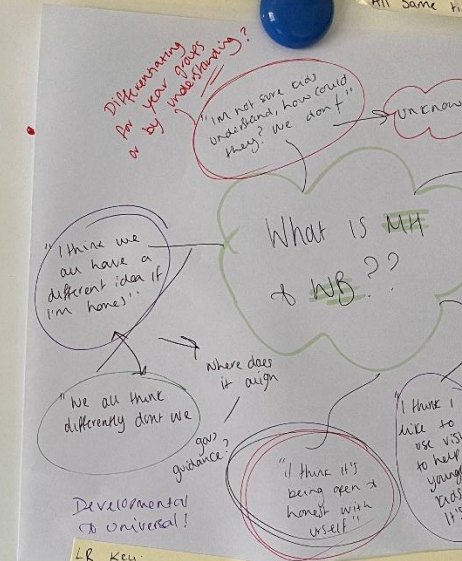 All same ti
Differentiating
for year groups
or by understanding?
"Im not sure kids
understand, how could
they? We dont"
unknow
What is MH
& WB??
"I think we
all have a
different idea if
I'm hones"
"We all think
differently dont we
Where does
it align
gov
guidance?
Developmental
& universal!
"I think it's
being open &
honest with
urself"
"I think I
like to
use vis
to help
young
kids
It's
LR Key: